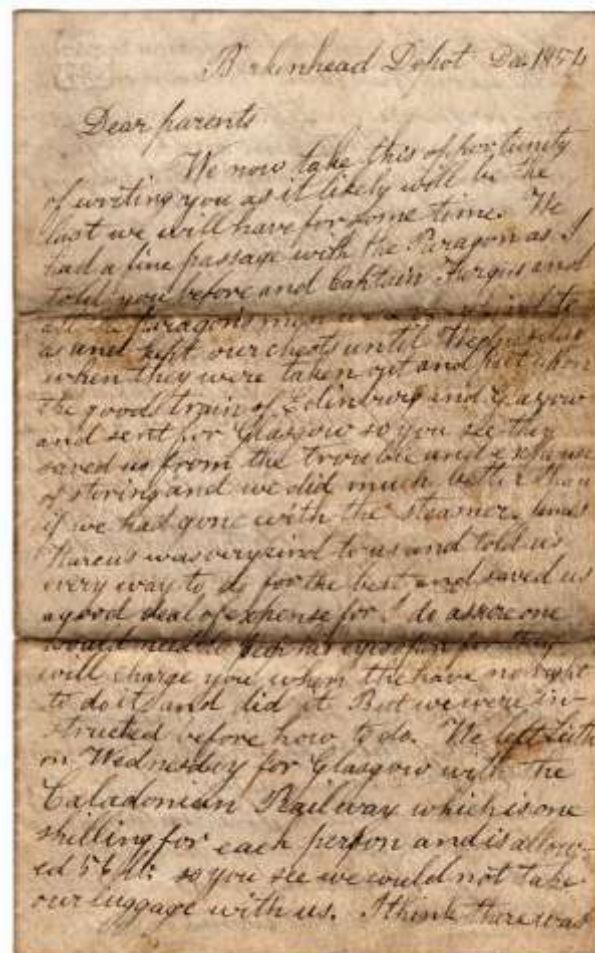 Birkenhead Depot Dec 1854
Dear parents
We now take this opportunity
of writing you as it likely will be the
last we will have for some time. We
had a fine passage with the Paragon as I
told you before and Captain Fergus and
all the Paragon's men were kind to
us and kept our chests until Wednesday
when they were taken out and put upon
the goods train of Edinburg and Glazow
and sent for Glasgow so you see they
saved us from the trouble and expense
of storing and we did much better than
if we had gone with the steamer. James
Harcus was very kind to us and told us
every way to do for the best and saved us
a good deal of expense for I do assure one
would need to his for they
will charge you when the have no right
to do it and did it But we were in-
structed before how to do. We left Leith
on Wednesday for Glasgow with the
Caladonian Railway which is one
shilling for each person and is allow-
ed 56 lb: so you see we would not take
our luggage with us. I think there was